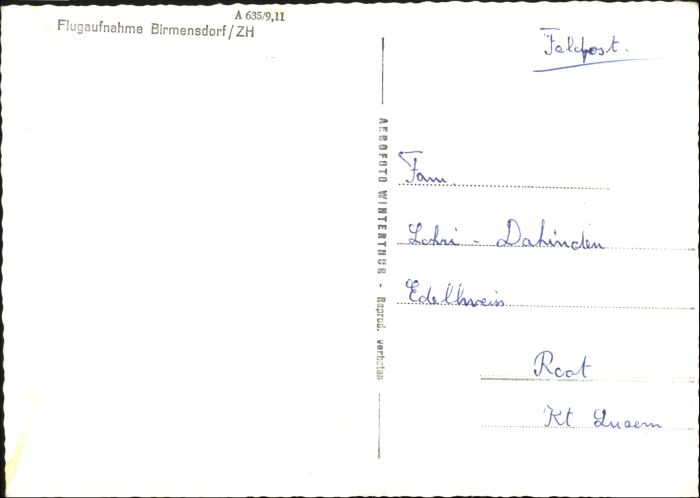 A 635/9,11
Flugaufnahme Birmensdorf/ZH
AEROFOTO WINTERTHUR - Reprod. verboten
Feldpost.
Fam.
Lohri - Dahinden
Edelhweiss
Root
Kt Luzern